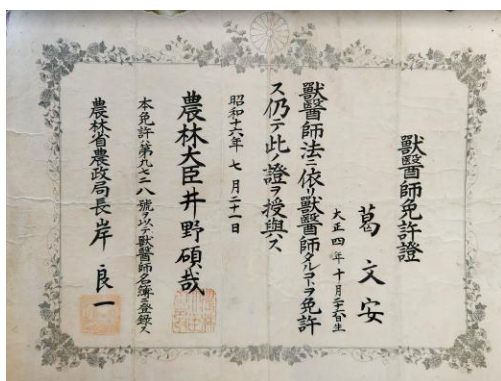 獸醫師免許證
葛文安
大正四年十月廿六日生
獸醫師法ニ依リ獸醫師タルコトヲ免許
ス仍テ此ノ證ヲ授與ス
昭和十六年七月二十一日
農林大臣井野碩哉
本免許ハ第九七二八號ヲ以テ獸醫師名簿ニ登録ス
農林省農政局長岸良一